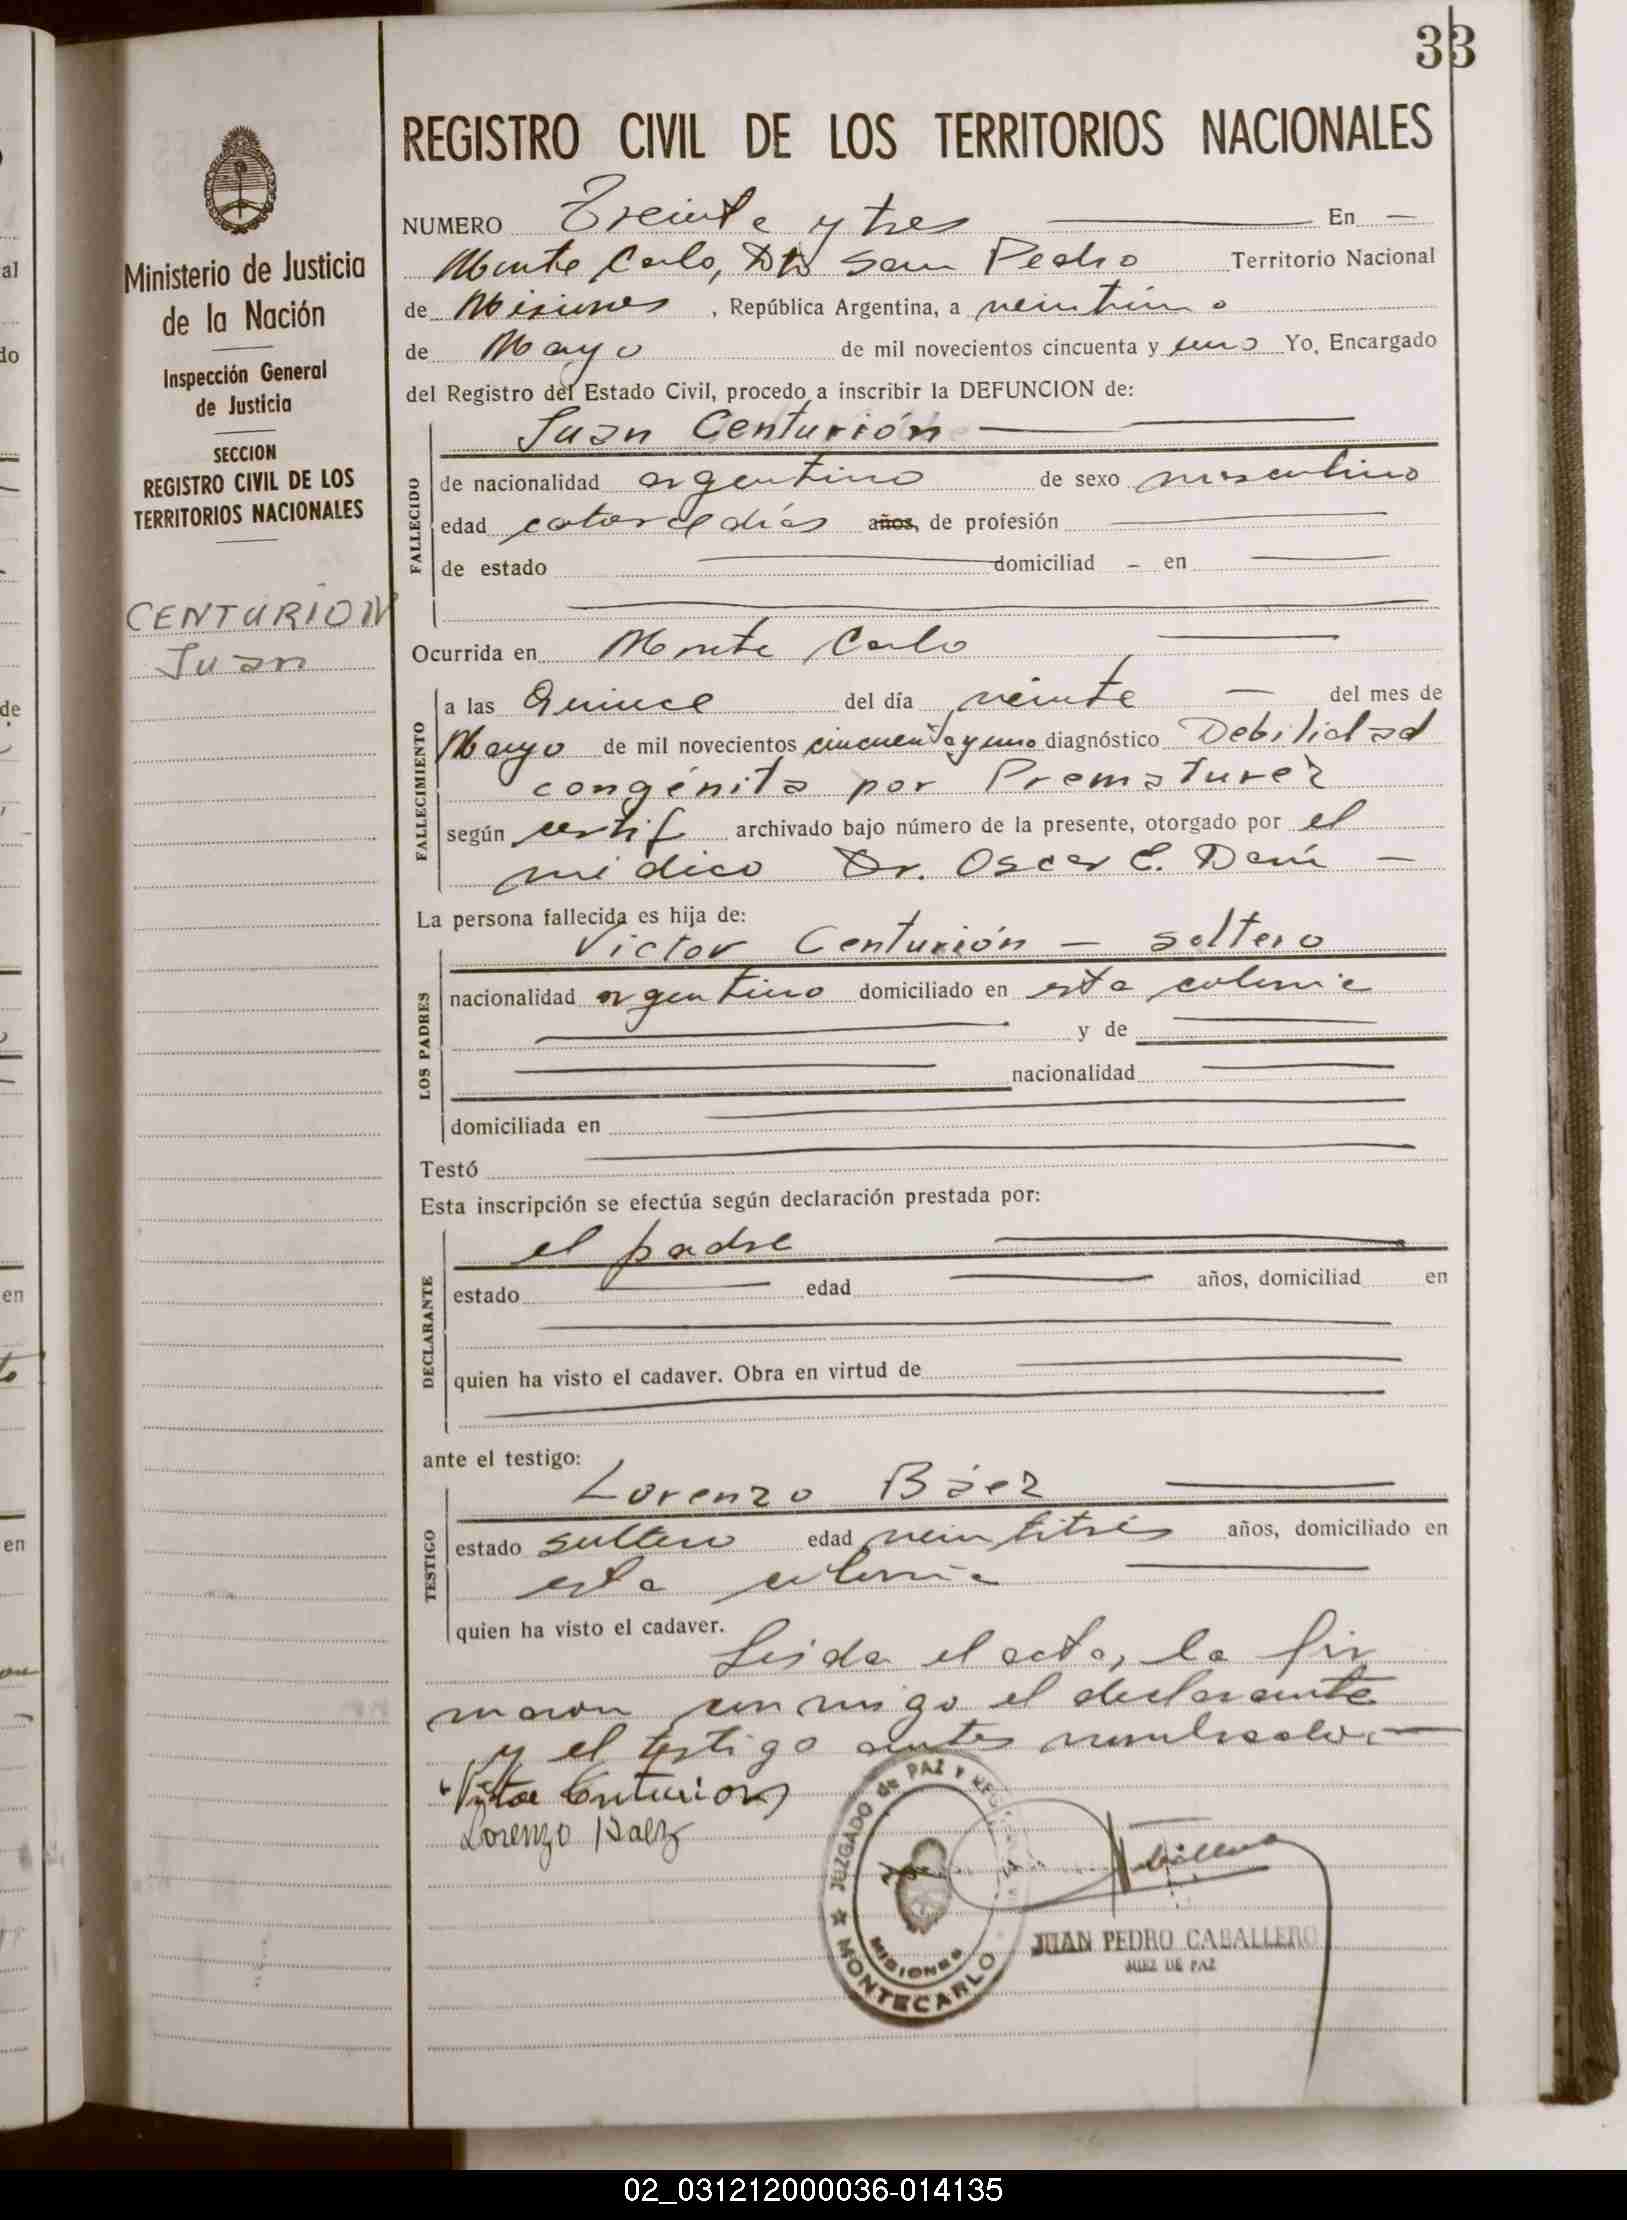 33
REGISTRO CIVIL DE LOS TERRITORIOS NACIONALES
Ministerio de Justicia
de la Nación
Inspección General
de Justicia
SECCION
REGISTRO CIVIL DE LOS
TERRITORIOS NACIONALES
CENTURION
Juan
NUMERO Treinta y tres En
Monte Carlo, Dto San Pedro Territorio Nacional
de Misiones, República Argentina, a veintiuno
de Mayo de mil novecientos cincuenta y uno Yo, Encargado
del Registro del Estado Civil, procedo a inscribir la DEFUNCION de:
Juan Centurión
FALLECIDO
de nacionalidad argentino de sexo masculino
edad catorce días años, de profesión
de estado domiciliad - en
Ocurrida en Monte Carlo
FALLECIMIENTO
a las Quince del día veinte del mes de
Mayo de mil novecientos cincuenta y uno diagnóstico Debilidad
congénita por Prematurez
según certif archivado bajo número de la presente, otorgado por el
médico Dr. Oscar E.
La persona fallecida es hija de:
Victor Centurión - soltero
LOS PADRES
nacionalidad argentino domiciliado en esta colonia
y de
nacionalidad
domiciliada en
Testó
Esta inscripción se efectúa según declaración prestada por:
el padre
DECLARANTE
estado edad años, domiciliad en
quien ha visto el cadaver. Obra en virtud de
ante el testigo:
Lorenzo Báez
TESTIGO
estado soltero edad veintitrés años, domiciliado en
esta colonia
quien ha visto el cadaver.
Leida el acta, la fir
maron conmigo el declarante
y el testigo antes nombrado.-
Victor Centurion
Lorenzo Baez
JUZGADO de PAZ Y
MISIONES
MONTECARLO
JUAN PEDRO CABALLERO
JUEZ DE PAZ
02_031212000036-014135